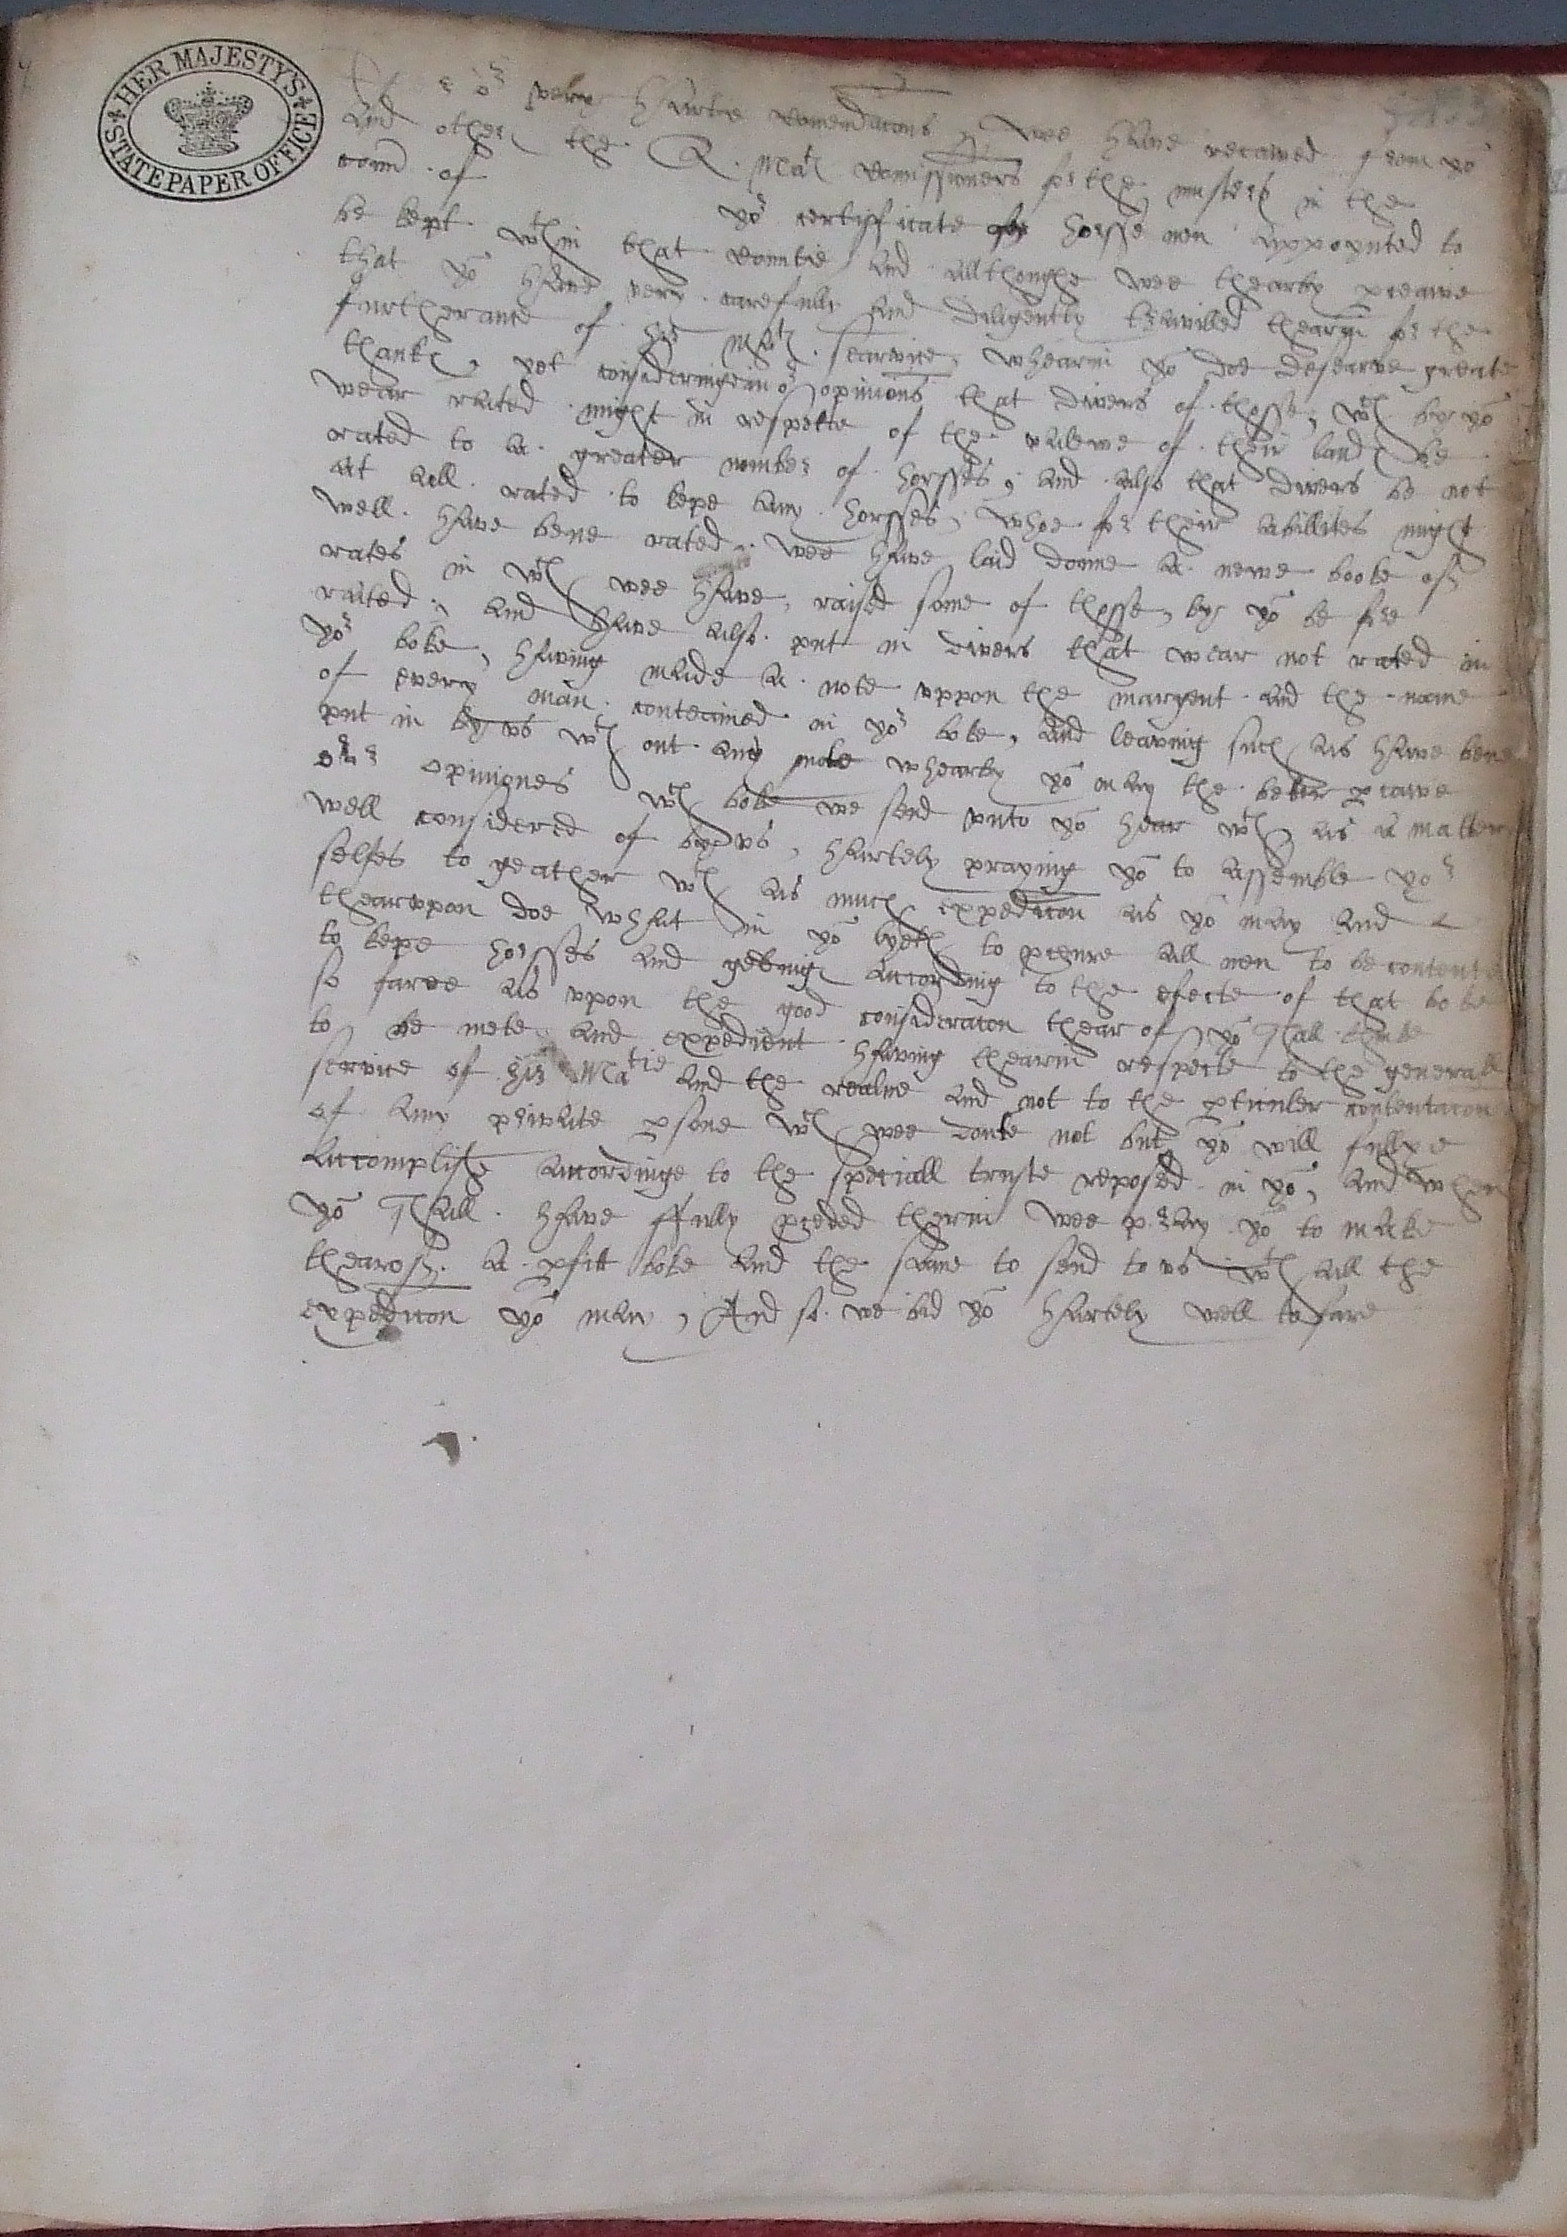 HER MAJESTY'S STATE PAPER OFFICE
oʳ very hartie comendacons, wee have receaved from yoᵘ
And other the Q. Maᵗⁱᵉˢ comissioners for the musters in the
coun of yoʳ certifficate of horsse men appoynted to
be kept wᵗʰin that countie, And allthoughe wee thearby pceaive
that yoᵘ have very carefully And diligently travilled thearin for the
furtherance of hir Maᵗⁱᵉˢ searvice, whearin yoᵘ doe desearve greate
thankes, yet consideringe in oʳ opinions that divers of thosse, wᶜʰ by yoᵘ
wear rated might in respecte of the valewe of their landes be
rated to A greater nomber of horsses, And also that divers be not
At All rated to kepe Any horsses, whoe for their Abillites might
well have bene rated, wee have laid downe A newe booke of
rates in wᶜʰ wee have raised some of thosse, by yoᵘ be fore
rated, And have Also put in divers that wear not rated in
yoʳ boke, having made A note uppon the margent And the name
of every man conteined in yoʳ boke, And leaving such As have bene
put in by us wᵗʰ out Any note whearby yoᵘ may the better pceave
oʳ opiniones wᶜʰ boke we send unto yoᵘ hear wᵗʰ, As A matter
well considered of by us, hartely praying yoᵘ to Assemble yoʳ
selfes to geather wᵗʰ As much expedicon As yoᵘ may And
thearuppon doe what in yoᵘ lyeth to pcure All men to be contente
to kepe horsses And geldings According to the efecte of that boke
so farre As upon the good consideracon thear of yoᵘ shall thinke
to be mete And expedient having thearin respecte to the generall
service of hir Maᵗⁱᵉ And the realme And not to the pticuler contentacon
of Any private psone wᶜʰ wee doute not but yoᵘ will fullye
Accomplishe Accordinge to the speciall truste reposed in yoᵘ, And when
yoᵘ shall have fully pceded therin wee pray yoᵘ to make
thearof A pfitt boke And the same to send to us wᵗʰ All the
expedicon yoᵘ may, And so we bid yoᵘ hartely well to fare